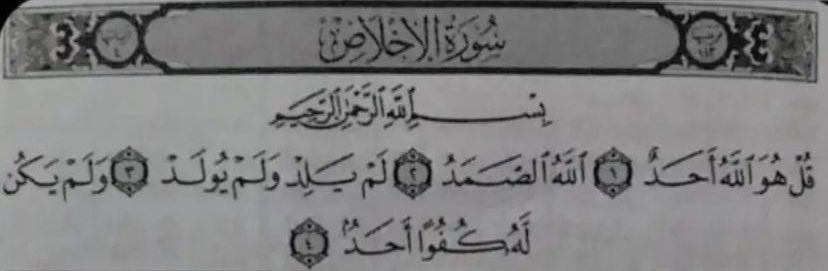 سُورَةُ الإِخْلَاصِ
بِسْمِ ٱللَّهِ ٱلرَّحْمَٰنِ ٱلرَّحِيمِ
قُلْ هُوَ ٱللَّهُ أَحَدٌ ١ ٱللَّهُ ٱلصَّمَدُ ٢ لَمْ يَلِدْ وَلَمْ يُولَدْ ٣ وَلَمْ يَكُن
لَّهُۥ كُفُوًا أَحَدٌۢ ٤